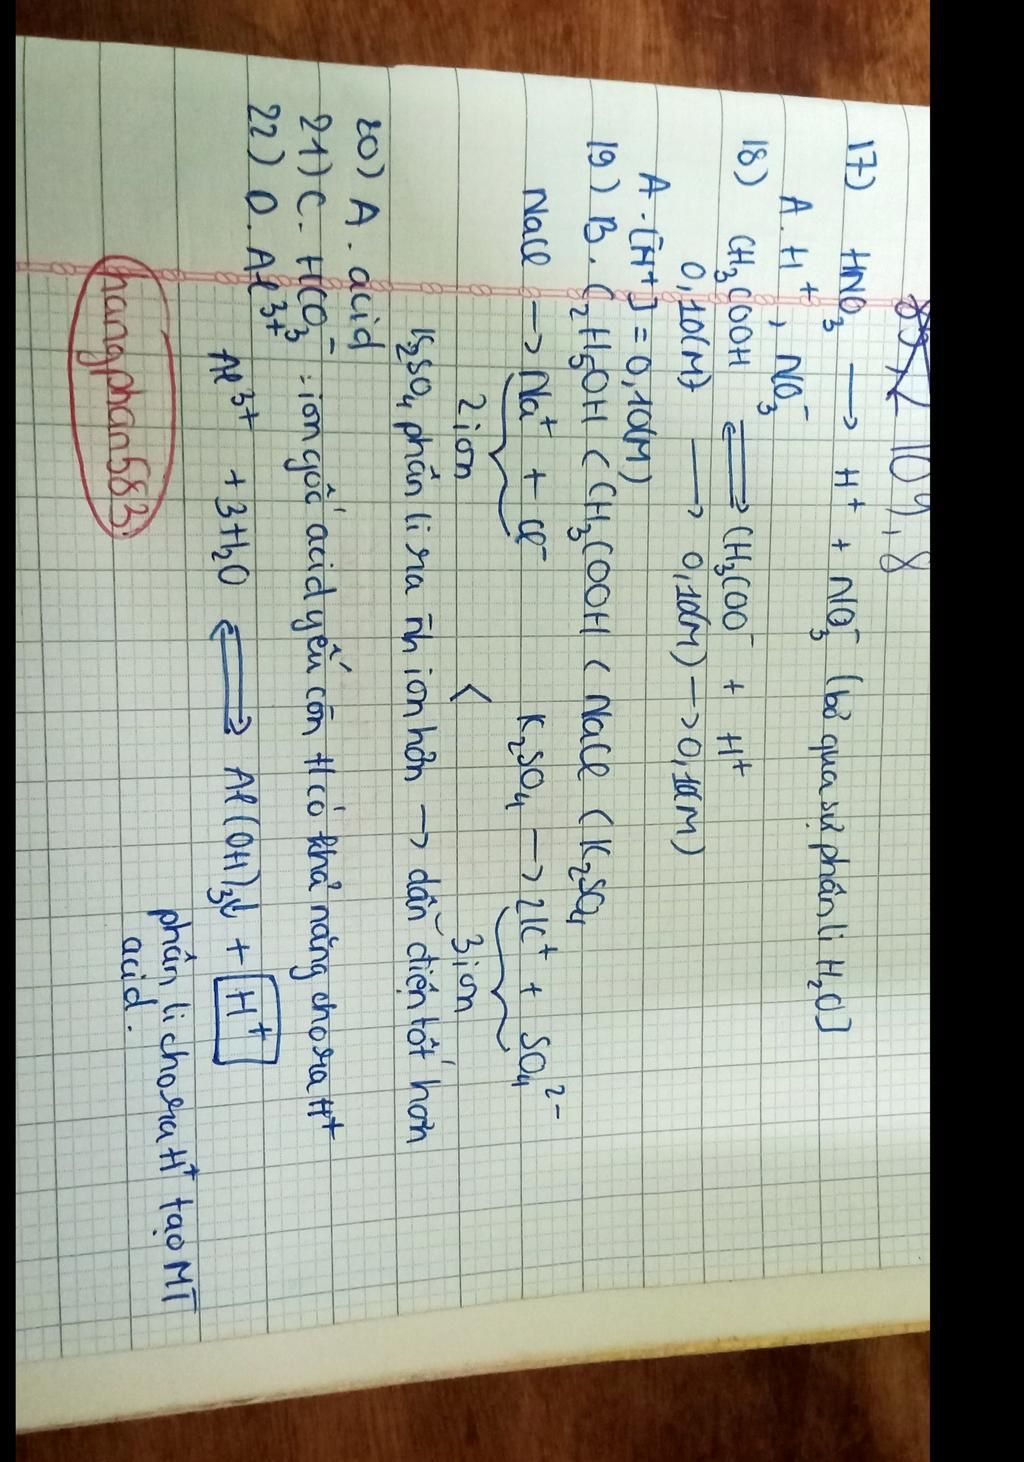 109,8
17) HNO₃ → H⁺ + NO₃⁻ (bỏ qua sự phân li H₂O)
A. H⁺, NO₃⁻
18) CH₃COOH ⇌ CH₃COO⁻ + H⁺
0,10(M) → 0,10(M) → 0,10(M)
A. [H⁺] = 0,10(M)
19) B. C₂H₅OH < CH₃COOH < NaCl < K₂SO₄
NaCl → Na⁺ + Cl⁻ K₂SO₄ → 2K⁺ + SO₄²⁻
2 ion < 3 ion
K₂SO₄ phân li ra nh ion hơn → dẫn điện tốt hơn
20) A. acid
21) C. HCO₃⁻ : ion gốc acid yếu còn H có khả năng cho ra H⁺
22) D. Al³⁺
Al³⁺ + 3H₂O ⇌ Al(OH)₃↓ + H⁺
phân li cho ra H⁺ tạo MT
acid.
hangphan583.